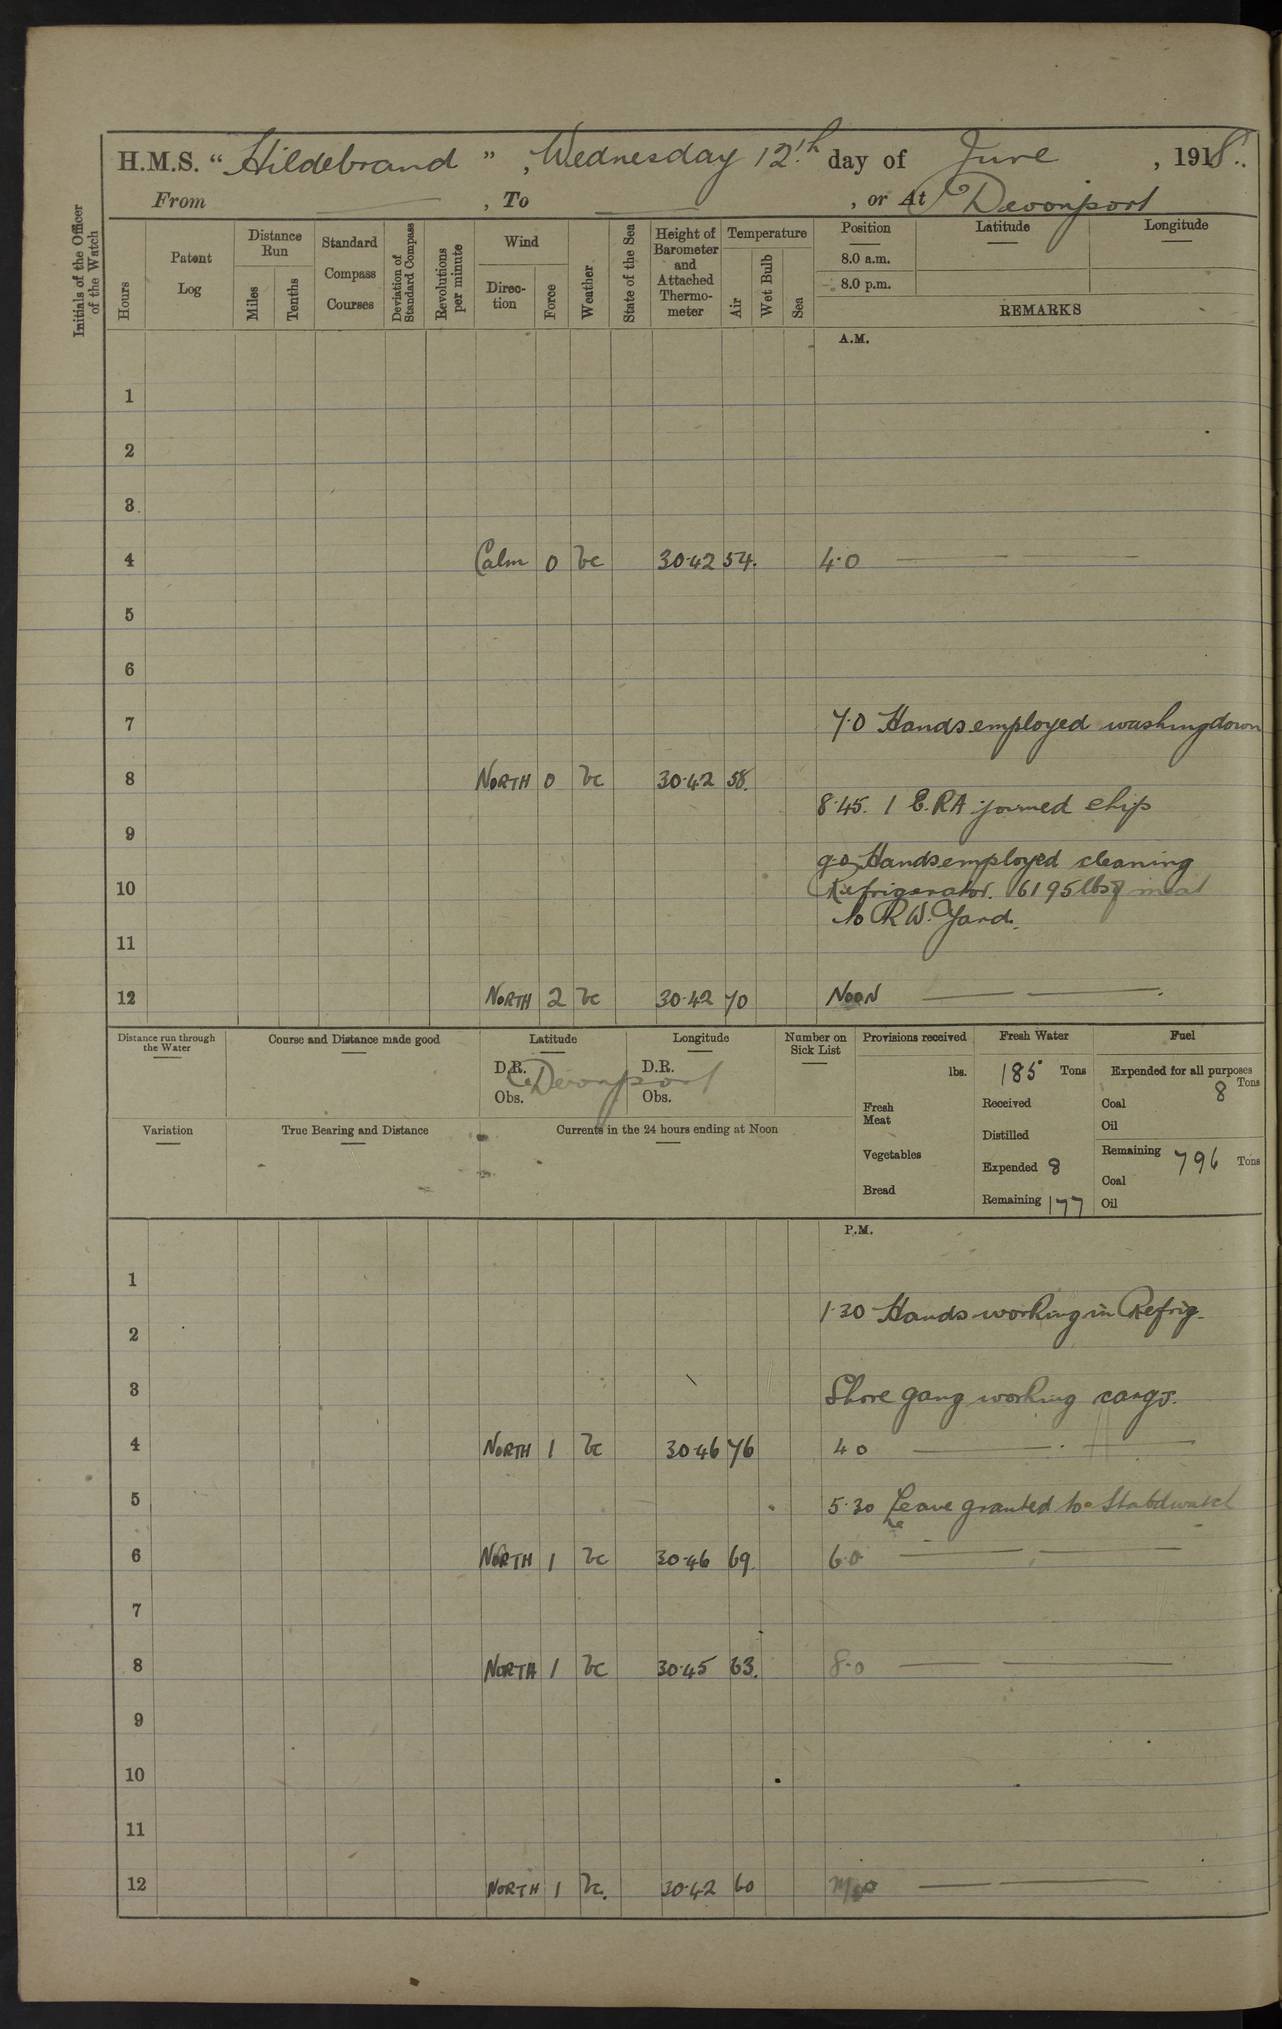 H.M.S. “Hildebrand”, Wednesday 12th day of June, 1918.
From ——, To ——, or At Devonport
Initials of the Officer of the Watch
Hours
Patent Log
Distance Run
Miles
Tenths
Standard Compass Courses
Deviation of Standard Compass
Revolutions per minute
Wind
Direction
Force
Weather
State of the Sea
Height of Barometer and Attached Thermometer
Temperature
Air
Wet Bulb
Sea
Position
Latitude
Longitude
8.0 a.m.
8.0 p.m.
REMARKS
A.M.
1
2
3
4 Calm 0 bc 30.42 54. 4.0 ——
5
6
7 7.0 Hands employed washing down
8 NORTH 0 bc 30.42 58.
8.45. 1 E.RA joined ship
9
9.0 Hands employed cleaning
10 Refrigerator. 6195 lbs of meat
to R.W. Yard.
11
12 NORTH 2 bc 30.42 70 NOON ——
Distance run through the Water
Course and Distance made good
Latitude
D.R.
Obs.
Longitude
D.R.
Obs.
Devonport
Number on Sick List
Provisions received
lbs.
Fresh Meat
Vegetables
Bread
Fresh Water
185 Tons
Received
Distilled
Expended 8
Remaining 177
Fuel
Expended for all purposes
8 Tons
Coal
Oil
Remaining 796 Tons
Coal
Oil
Variation
True Bearing and Distance
Currents in the 24 hours ending at Noon
P.M.
1
1.30 Hands working in Refrig.
2
3 Shore gang working cargo.
4 NORTH 1 bc 30.46 76 4.0 ——
5 5.30 Leave granted to Stabdwatch
6 NORTH 1 bc 30.46 69. 6.0 ——
7
8 NORTH 1 bc 30.45 63. 8.0 ——
9
10
11
12 NORTH 1 bc. 30.42 60 ——